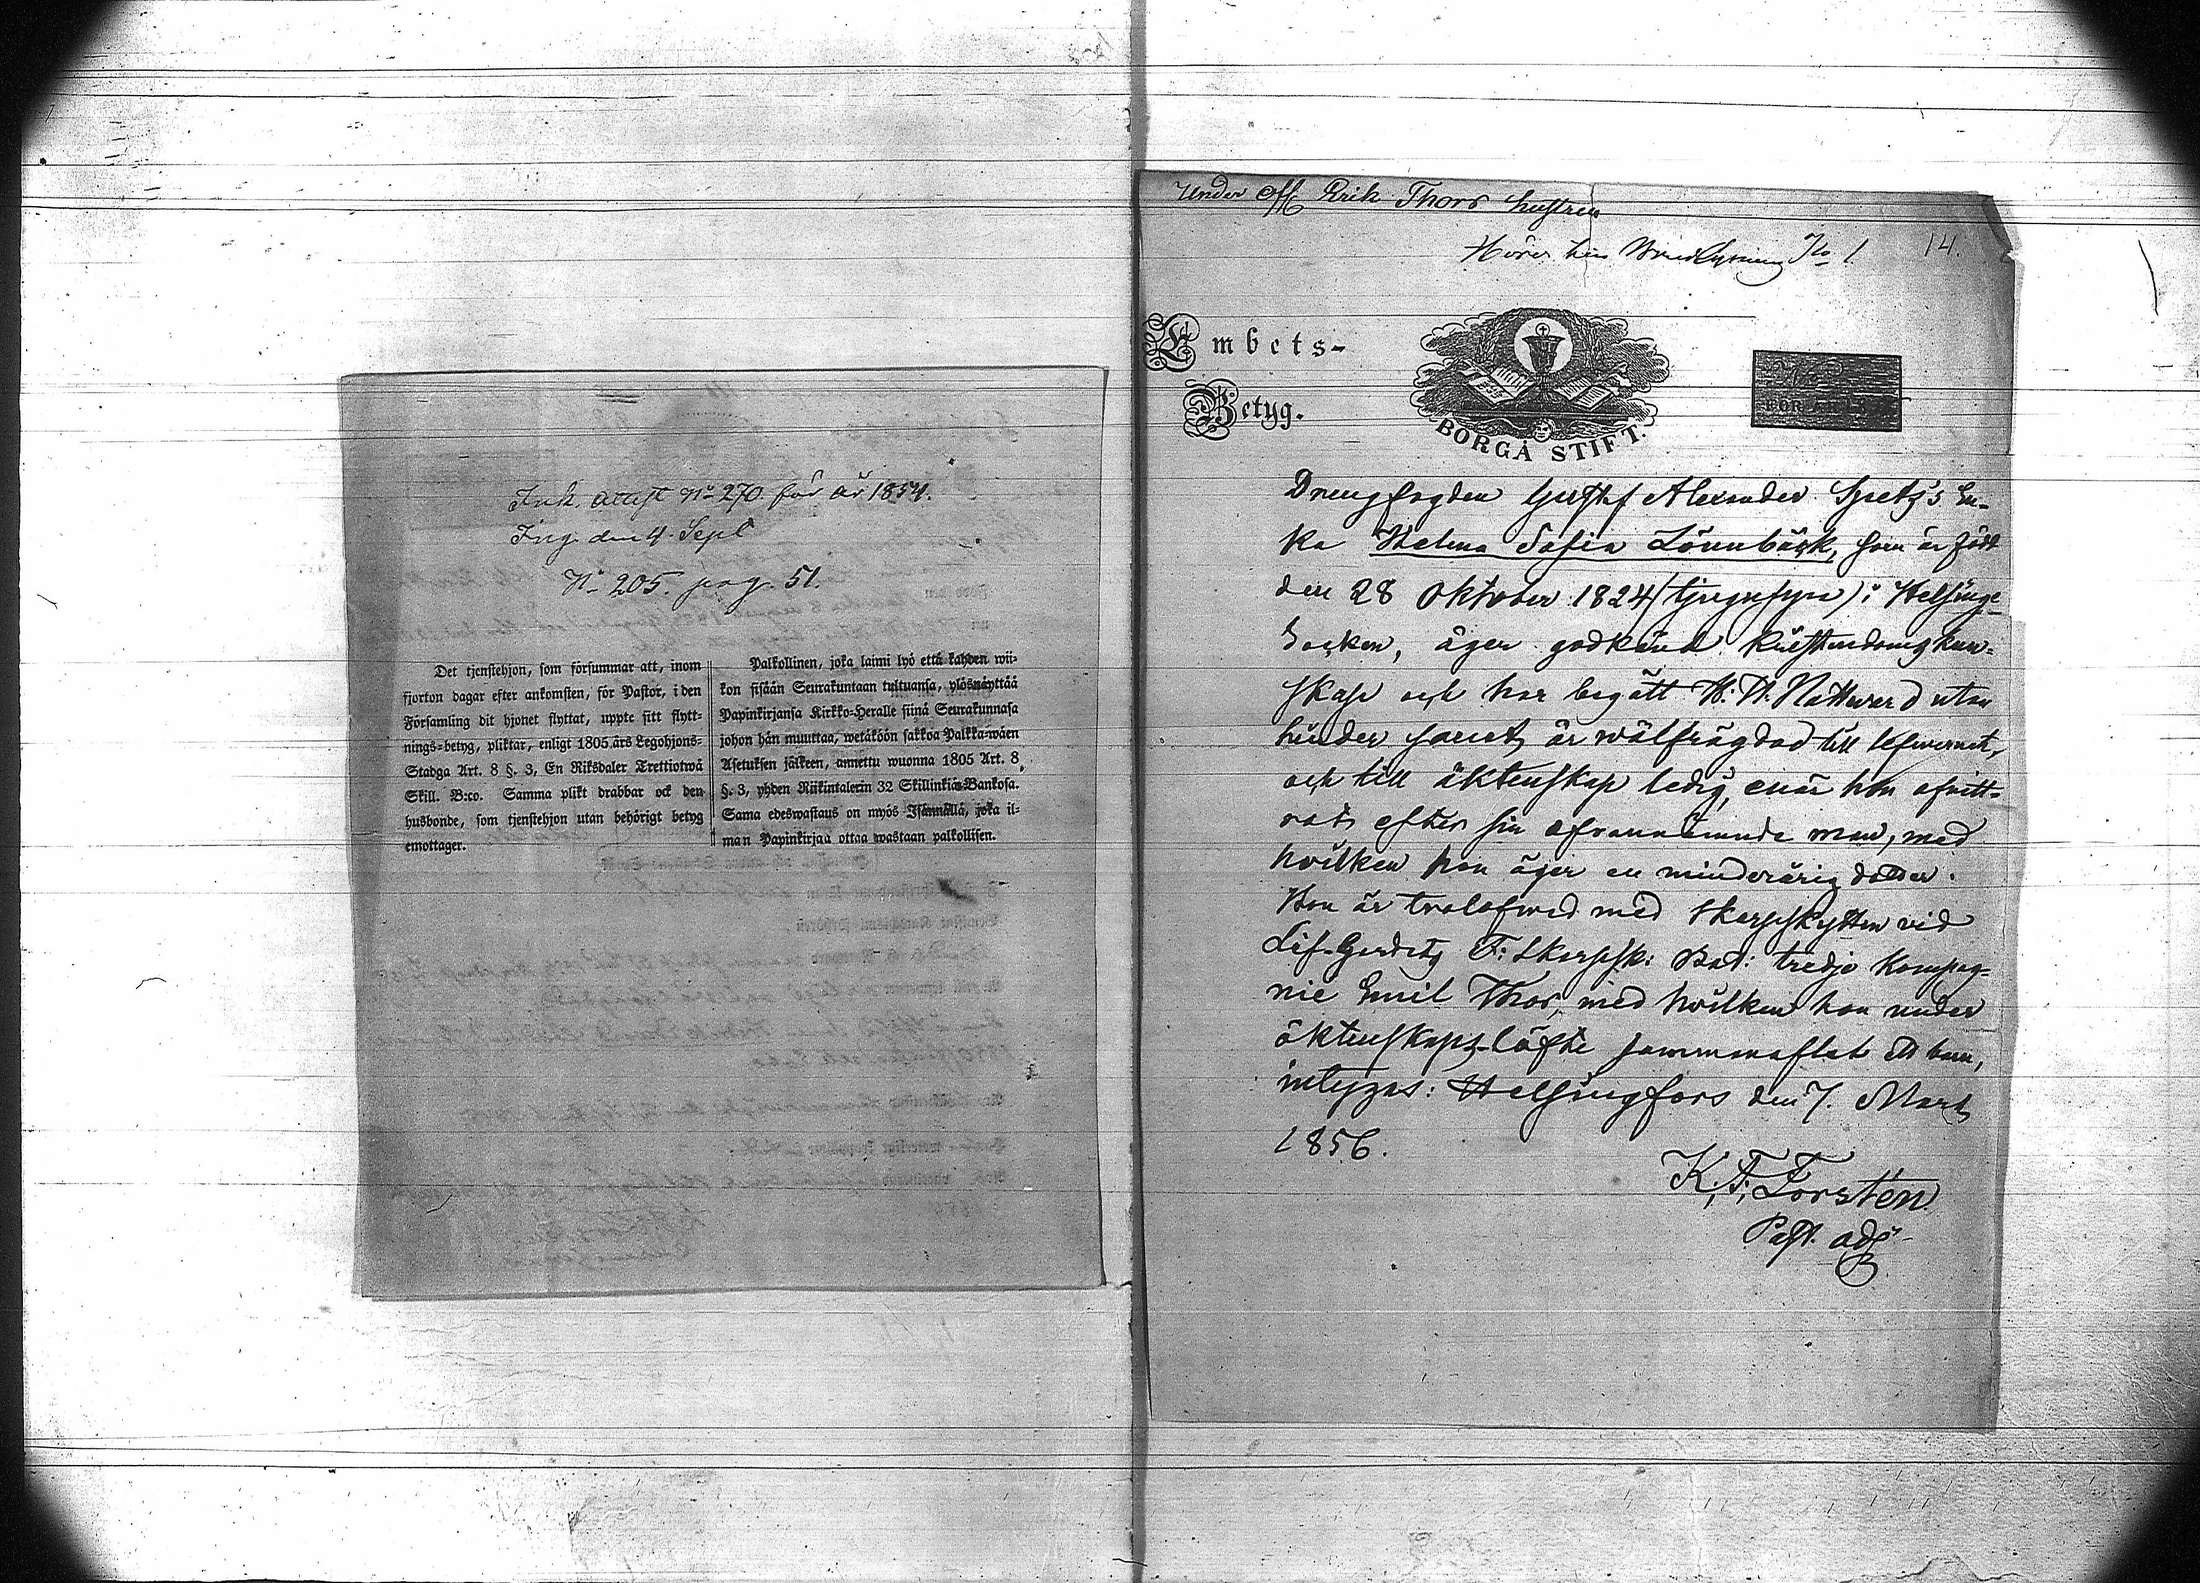 Ink. attest No 270. för år 1854.
Ing. den 4. Sept
No 205. pag. 51.
Det tjenstehjon, som försummar att, inom
fjorton dagar efter ankomsten, för Pastor, i den
Församling dit hjonet flyttat, uppte sitt flytt-
nings-betyg, pliktar, enligt 1805 års Legohjons-
Stadga Art. 8 §. 3, En Riksdaler Trettiotwå
Skill. B:co. Samma plikt drabbar ock den
husbonde, som tjenstehjon utan behörigt betyg
emottager.
Palkollinen, joka laimi lyö että kahden wii-
kon sisään Seurakuntaan tultuansa, ylösnäyttää
Papinkirjansa Kirkko-Heralle siinä Seurakunnasa
johon hän muuttaa, wetäköön sakkoa Palkka-wäen
Asetuksen jälkeen, annettu wuonna 1805 Art. 8,
§. 3, yhden Riikintalerin 32 Skillinkiä Bankosa.
Sama edeswastaus on myös Isännällä, joka il-
man Papinkirjaa ottaa wastaan palkollisen.
Under off. Erik Thors hustru
Hörer hin No 1. 14.
Embets-
Betyg.
BORGÅ STIFT.
Drengfogden Gustaf Alexander Spetz's En-
ka Helena Sofia Lönnbäck, som är född
den 28 Oktober 1824 (tjugufyra) i Helsinge
Socken, äger godkänd Kristendomskun-
skap och har begått H. H. Nattward utan
hinder är wälfrägdad till lefwernet,
och till äktenskap ledig, enär hon afwitt-
rat efter sin ofvannämnde man, med
hvilken hon äger en minderårig dotter.
Hon är trolofwad med Skarpskytten vid
Lif-Gardets F: Skarpsk: Bat: tredje Kompag-
nie Emil Thor, med hvilken hon under
äktenskaps-löfte sammanaflat ett barn,
intygas: Helsingfors den 7. Mart
1856.
K. F. Forstén
Past. adj.